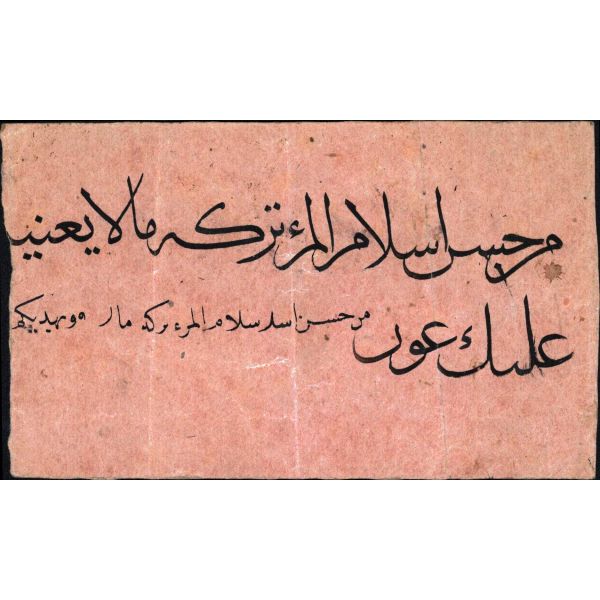 من حسن اسلام المرء تركه مالا يعنيه
عليك عون
من حسن اسد سلام المرء تركه ما